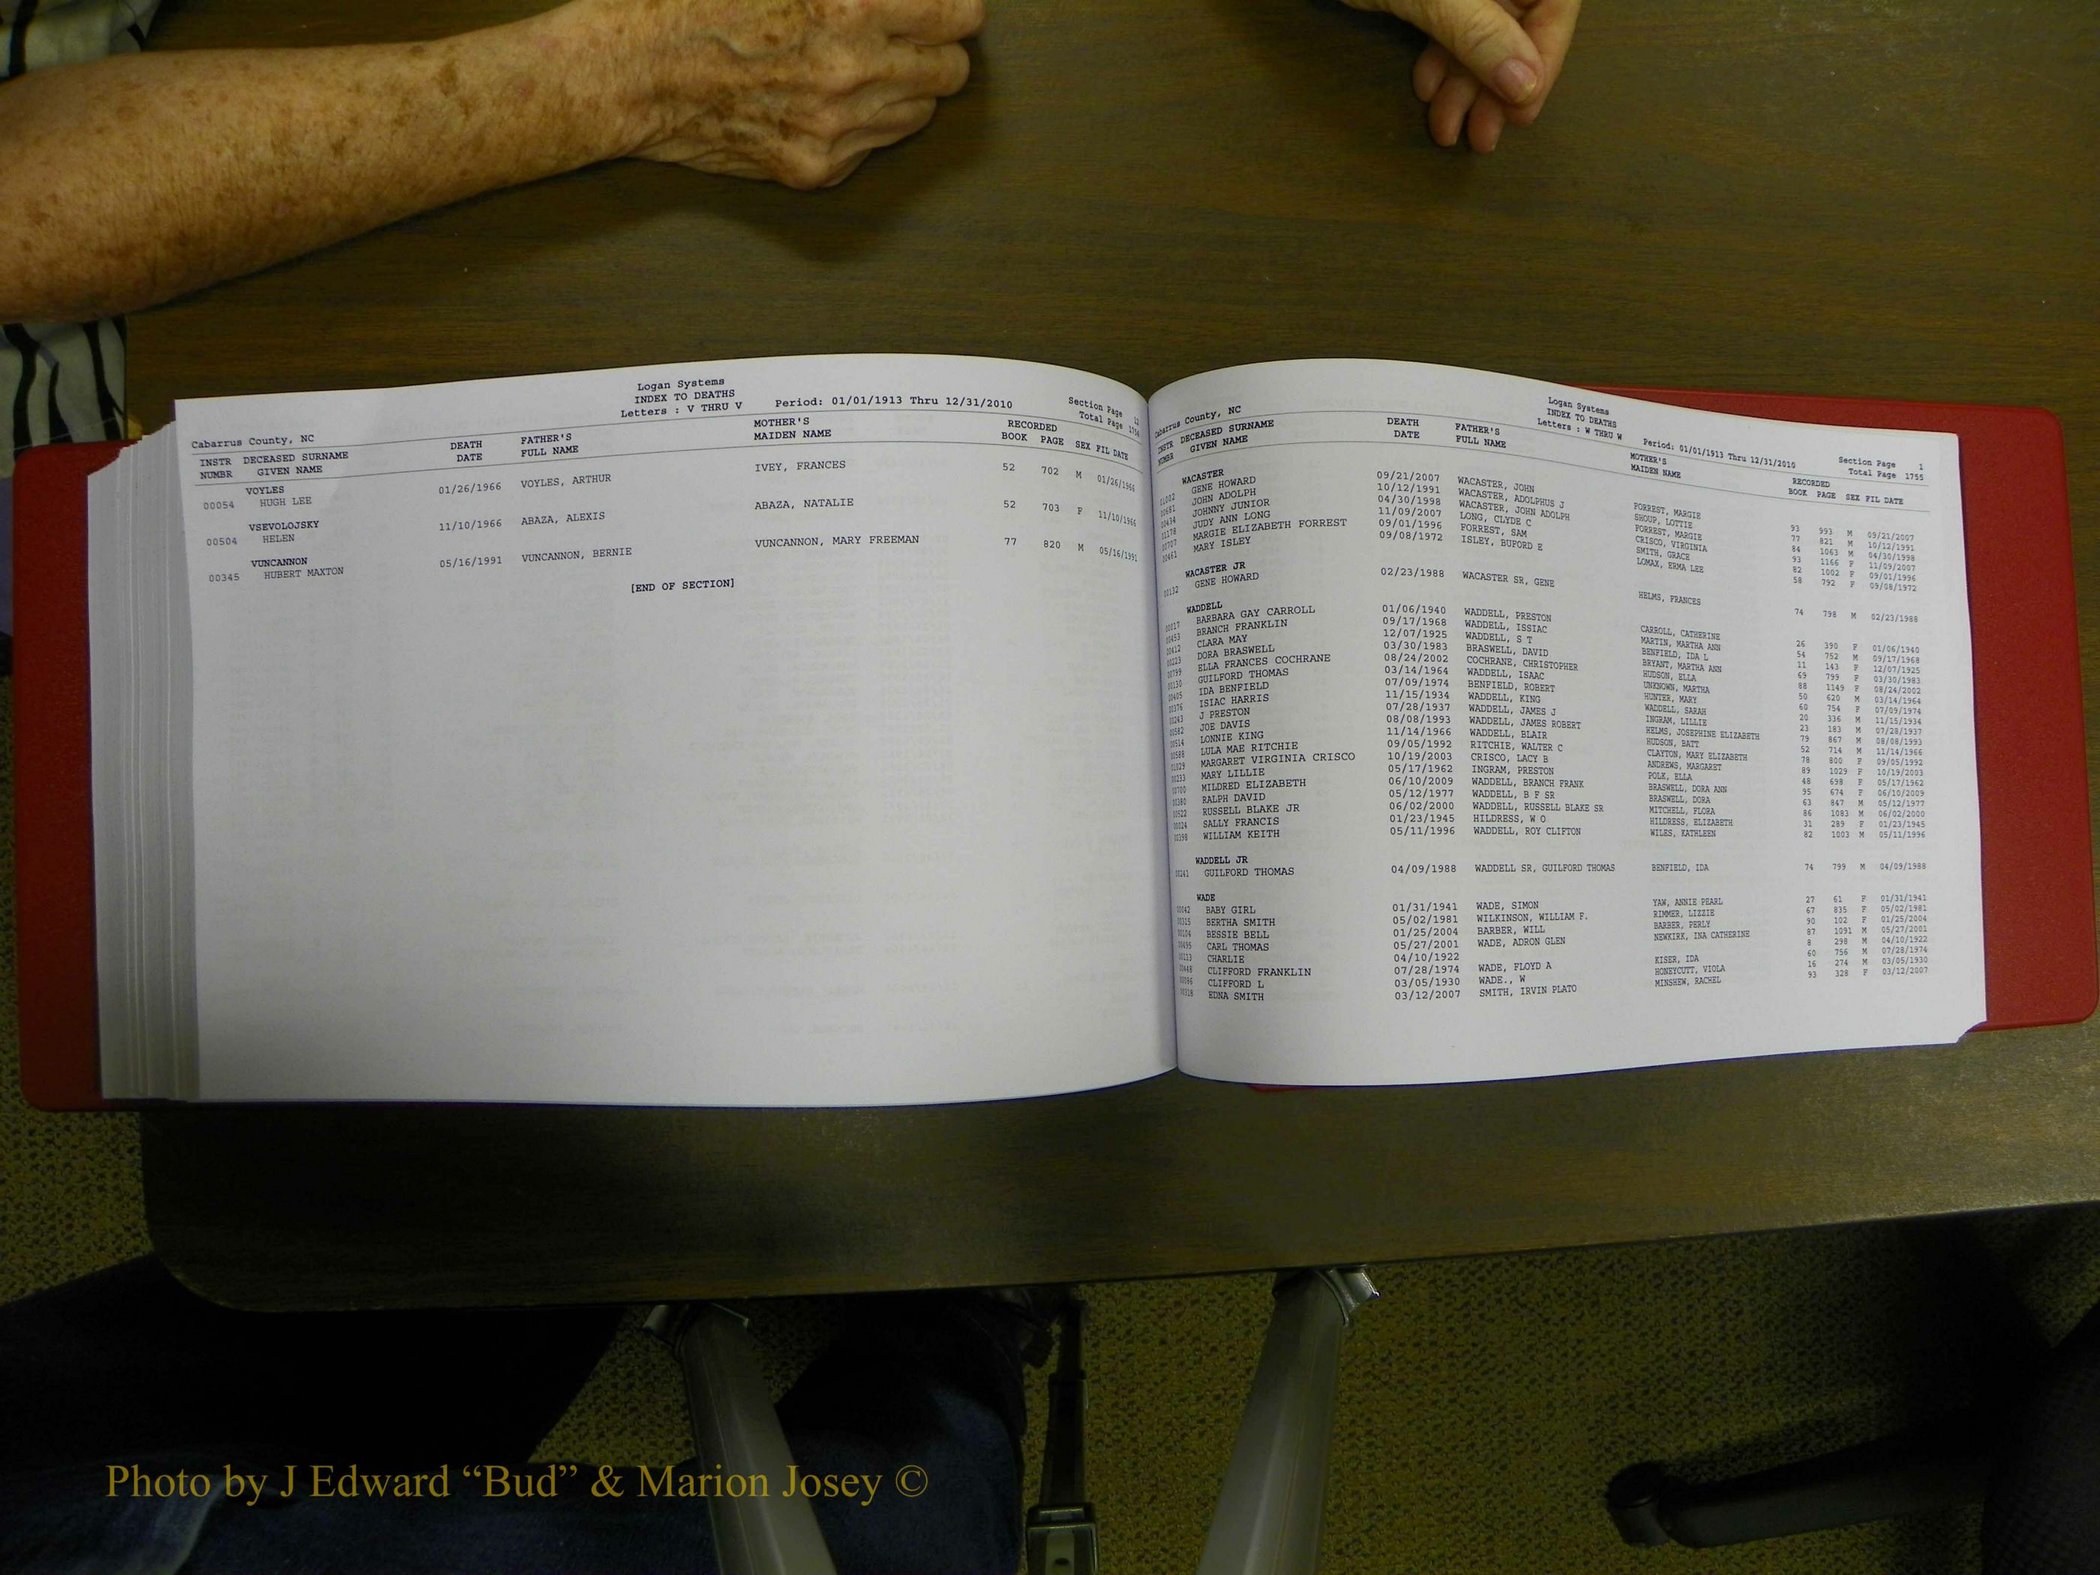 Logan Systems
INDEX TO DEATHS
Letters : V THRU V Period: 01/01/1913 Thru 12/31/2010 Section Page 12
Cabarrus County, NC Total Page 1754
INSTR DECEASED SURNAME DEATH FATHER'S MOTHER'S RECORDED
NUMBR GIVEN NAME DATE FULL NAME MAIDEN NAME BOOK PAGE SEX FIL DATE
VOYLES
00054 HUGH LEE 01/26/1966 VOYLES, ARTHUR IVEY, FRANCES 52 702 M 01/26/1966
VSEVOLOJSKY
00504 HELEN 11/10/1966 ABAZA, ALEXIS ABAZA, NATALIE 52 703 F 11/10/1966
VUNCANNON
00345 HUBERT MAXTON 05/16/1991 VUNCANNON, BERNIE VUNCANNON, MARY FREEMAN 77 820 M 05/16/1991
[END OF SECTION]
Logan Systems
INDEX TO DEATHS
Cabarrus County, NC Letters : W THRU W Period: 01/01/1913 Thru 12/31/2010 Section Page 1
Total Page 1755
INSTR DECEASED SURNAME DEATH FATHER'S MOTHER'S RECORDED
NUMBR GIVEN NAME DATE FULL NAME MAIDEN NAME BOOK PAGE SEX FIL DATE
WACASTER
GENE HOWARD 09/21/2007 WACASTER, JOHN FORREST, MARGIE 93 993 M 09/21/2007
JOHN ADOLPH 10/12/1991 WACASTER, ADOLPHUS J SHOUP, LOTTIE 77 821 M 10/12/1991
JOHNNY JUNIOR 04/30/1998 WACASTER, JOHN ADOLPH FORREST, MARGIE 84 1063 M 04/30/1998
JUDY ANN LONG 11/09/2007 LONG, CLYDE C CRISCO, VIRGINIA 93 1166 F 11/09/2007
MARGIE ELIZABETH FORREST 09/01/1996 FORREST, SAM SMITH, GRACE 82 1002 F 09/01/1996
MARY ISLEY 09/08/1972 ISLEY, BUFORD E LOMAX, ERMA LEE 58 792 F 09/08/1972
WACASTER JR
00132 GENE HOWARD 02/23/1988 WACASTER SR, GENE HELMS, FRANCES 74 798 M 02/23/1988
WADDELL
00017 BARBARA GAY CARROLL 01/06/1940 WADDELL, PRESTON CARROLL, CATHERINE 26 390 F 01/06/1940
00453 BRANCH FRANKLIN 09/17/1968 WADDELL, ISSIAC MARTIN, MARTHA ANN 54 752 M 09/17/1968
00412 CLARA MAY 12/07/1925 WADDELL, S T BENFIELD, IDA L 11 143 F 12/07/1925
00223 DORA BRASWELL 03/30/1983 BRASWELL, DAVID BRYANT, MARTHA ANN 69 799 F 03/30/1983
00799 ELLA FRANCES COCHRANE 08/24/2002 COCHRANE, CHRISTOPHER HUDSON, ELLA 88 1149 F 08/24/2002
00130 GUILFORD THOMAS 03/14/1964 WADDELL, ISAAC UNKNOWN, MARTHA 50 620 M 03/14/1964
00405 IDA BENFIELD 07/09/1974 BENFIELD, ROBERT HUNTER, MARY 60 754 F 07/09/1974
00376 ISIAC HARRIS 11/15/1934 WADDELL, KING WADDELL, SARAH 20 336 M 11/15/1934
00243 J PRESTON 07/28/1937 WADDELL, JAMES J INGRAM, LILLIE 23 183 M 07/28/1937
00582 JOE DAVIS 08/08/1993 WADDELL, JAMES ROBERT HELMS, JOSEPHINE ELIZABETH 79 867 M 08/08/1993
00514 LONNIE KING 11/14/1966 WADDELL, BLAIR HUDSON, BATT 52 714 M 11/14/1966
00588 LULA MAE RITCHIE 09/05/1992 RITCHIE, WALTER C CLAYTON, MARY ELIZABETH 78 800 F 09/05/1992
01029 MARGARET VIRGINIA CRISCO 10/19/2003 CRISCO, LACY B ANDREWS, MARGARET 89 1029 F 10/19/2003
00233 MARY LILLIE 05/17/1962 INGRAM, PRESTON POLK, ELLA 48 698 F 05/17/1962
00700 MILDRED ELIZABETH 06/10/2009 WADDELL, BRANCH FRANK BRASWELL, DORA ANN 95 674 F 06/10/2009
00380 RALPH DAVID 05/12/1977 WADDELL, B F SR BRASWELL, DORA 63 847 M 05/12/1977
00522 RUSSELL BLAKE JR 06/02/2000 WADDELL, RUSSELL BLAKE SR MITCHELL, FLORA 86 1083 M 06/02/2000
00024 SALLY FRANCIS 01/23/1945 HILDRESS, W O HILDRESS, ELIZABETH 31 289 F 01/23/1945
00398 WILLIAM KEITH 05/11/1996 WADDELL, ROY CLIFTON WILES, KATHLEEN 82 1003 M 05/11/1996
WADDELL JR
00241 GUILFORD THOMAS 04/09/1988 WADDELL SR, GUILFORD THOMAS BENFIELD, IDA 74 799 M 04/09/1988
WADE
00042 BABY GIRL 01/31/1941 WADE, SIMON YAW, ANNIE PEARL 27 61 F 01/31/1941
00315 BERTHA SMITH 05/02/1981 WILKINSON, WILLIAM F. RIMMER, LIZZIE 67 835 F 05/02/1981
00104 BESSIE BELL 01/25/2004 BARBER, WILL BARBER, PERLY 90 102 F 01/25/2004
00495 CARL THOMAS 05/27/2001 WADE, ADRON GLEN NEWKIRK, INA CATHERINE 87 1091 M 05/27/2001
00113 CHARLIE 04/10/1922 8 298 M 04/10/1922
00448 CLIFFORD FRANKLIN 07/28/1974 WADE, FLOYD A KISER, IDA 60 756 M 07/28/1974
00096 CLIFFORD L 03/05/1930 WADE., W HONEYCUTT, VIOLA 16 274 M 03/05/1930
00318 EDNA SMITH 03/12/2007 SMITH, IRVIN PLATO MINSHEW, RACHEL 93 328 F 03/12/2007
Photo by J Edward “Bud” & Marion Josey ©